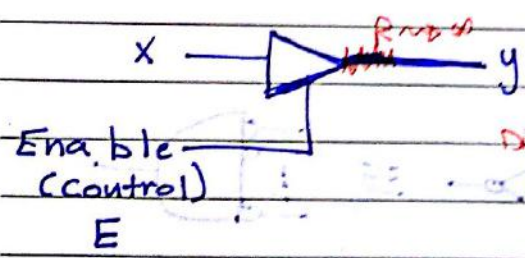 R→∞
X
y
Ena.ble
(Control)
E